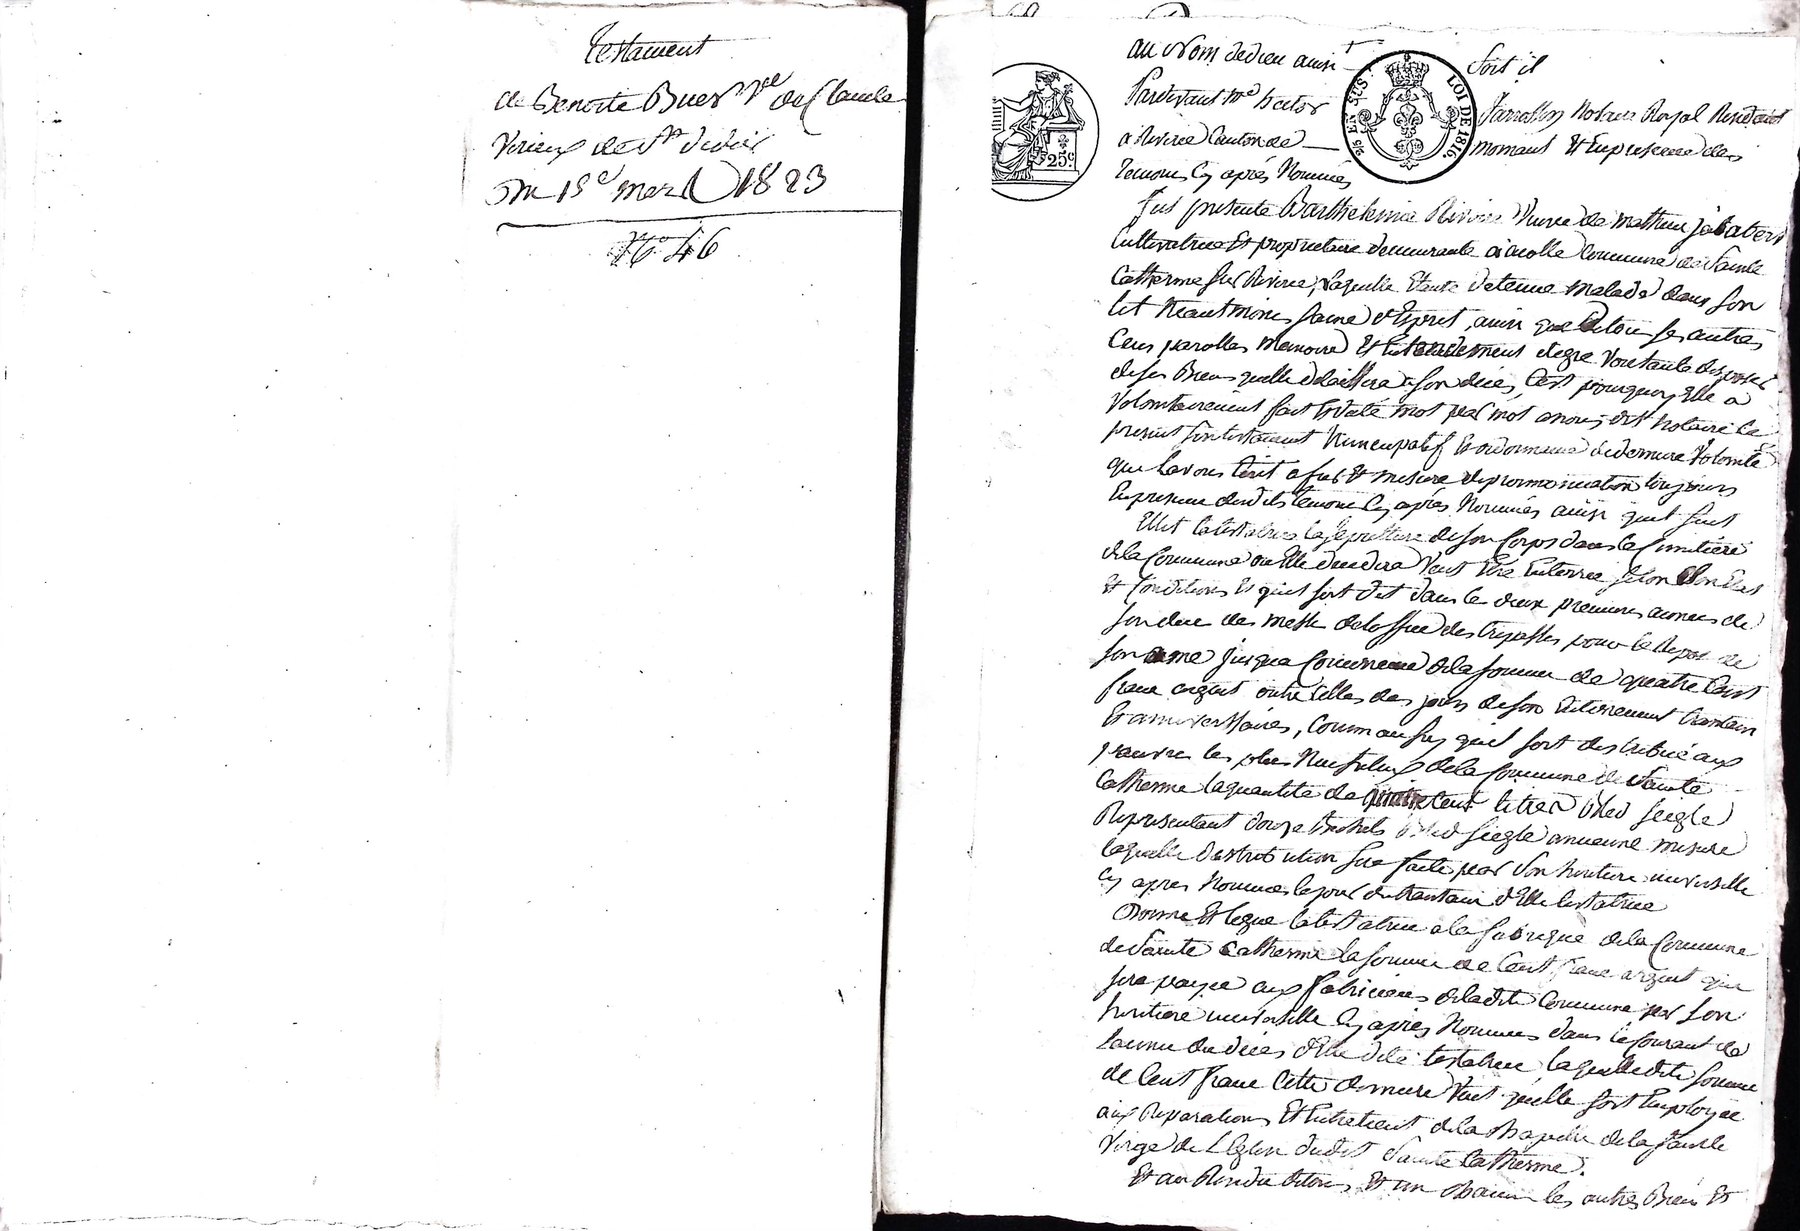 Testament
de Benoite Buer Vve de Claude
Virieux de St Didier
Du 15e mars 1823
No. 46
au Nom de dieu ainsi Soit il
25 EN SUS.
LOI DE 1816.
25c.
Pardevant Me hector Jarrosson Notaire Royal Residant
a Riverie Canton de mornant Et En presence des
temoins Cy après Nommés
fut presente Barthelemie Rivoire Veuve de mathieu
Cultivatrice Et proprietaire demeurante a Commune de Sainte
Catherine Sur Riverie, Laquelle Etant detenue malade dans Son
lit Neantmoins Saine d'Esprit, ainsi que de tous Ses autres
Cens parolles memoire Et Entendement et Voulant disposer
de Ses Biens quelle delaissera a Son décés, C'est pourquoy Elle a
Volontairement fait Et dicté mot par mot a nous dit Notaire Le
present Son testament Nuncupatif Et ordonnance de derniere Volonté
que Lavons Ecrit a fur Et mesure de prononciation toujours
En presence desdits temoins Cy après Nommés ainsi quil Suit
Elit la testatrice La Sepulture de Son Corps dans le Cimetière
de la Commune ou Elle decedera Veut Etre Enterrée Selon Son Etat
Et Conditions Et quil Soit dit dans les deux premieres années de
Son deces des messes de loffice des trepassés pour le Repos de
Son ame jusqua Concurrence de la Somme de quatre Cent
franc argent outre Celles des jours de Son Enterrement trantain
Et anniversaires, Comm aussy quil Soit distribué aux
pauvres les plus Necessiteux de la Commune de Sainte
Catherine la quantité de quatre Cent litres bled Seigle
Representant douze bichets bled Siegle ancienne mesure
laquelle distribution Sera faite par Son heritiere universelle
Cy après Nommée le jour du trantain d'Elle testatrice
Donne Et Legue la testatrice a la fabrique de la Commune
de Sainte Catherine la Somme de Cent franc argent qui
Sera payée aux fabriciens de ladite Commune par Son
heritiere universelle Cy après Nommée dans le Courant de
Lannée du décès d'Elle dite testatrice laquelle dite Somme
de Cent franc Cette derniere Veut quelle Soit Employée
aux Reparations Et Entretient de la Chapelle de la Sainte
Vierge de L'Eglise dudit Sainte Catherine.
Et au Residu de tous Et un Chacun les autres Biens Et